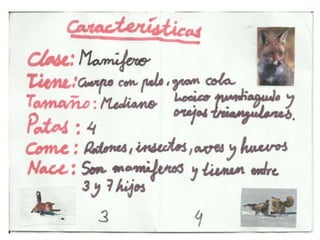 Características
Clase: Mamífero
Tiene: Cuerpo con pelo, gran cola
Hocico puntiagudo y
orejas triangulares.
Tamaño: Mediano
Patas: 4
Come: Ratones, insectos, aves y huevos
Nace: Son mamiferos y tienen entre
3 y 7 hijos
3
4